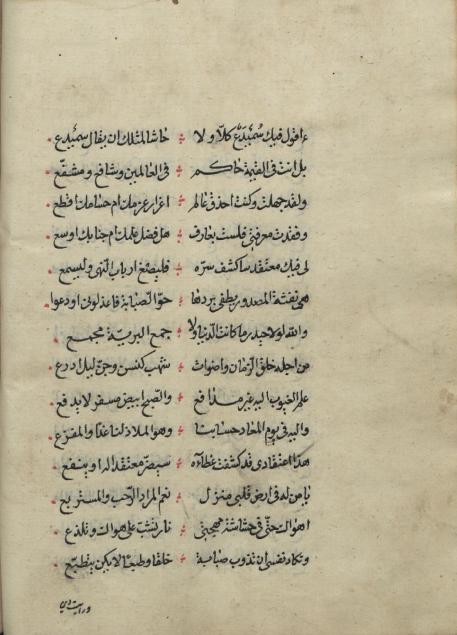 ءاقول فيك سُمَيْدَعٌ كلّا ولا ؞ حاشا لمثلك ان يقال سميدع
بل انت فى القيمة حاكم ؞ فى العالمين وشافع ومشفّع
ولقد جهلت وكنت احذق عالم ؞ اغرار عزمك ام حسامك اقطع
وفقدت معرفتى فلست بعارف ؞ هل فضل علمك ام جنابك اوسع
لى فيك معتقد ساكشف سرّه ؞ فليصغ ارباب النهى وليسمع
هى نفثة المصدور يطفى بردها ؞ حرّ الصّبابة فاعذلونى او دعوا
والله لولا حيدر ما كانت الدنيا ولا ؞ جمع البريّة مجمع
من اجله خلق الزمان واضوات ؞ شهب كنسن وجنّ ليل ادرع
علم الغيوب اليه غير مدافع ؞ والصبح ابيض مسفر لا يدفع
واليه فى يوم المعاد حسابنا ؞ وهو الملاذ لنا غدًا والمفزع
هذا اعتقادى قد كشفت غطاءه ؞ سيضرّ معتقدًا له او ينفع
يا من له فى ارض قلبى منزل ؞ نعم المراد الرّحب والمستربع
اهواك حتّى فى حشاشة مهجتى ؞ نار تشبّ على هواك وتلذع
وتكاد نفسى ان تذوب صبابة ؞ خلقا وطبعًا لا كمن يتطبّع
ورايت دين